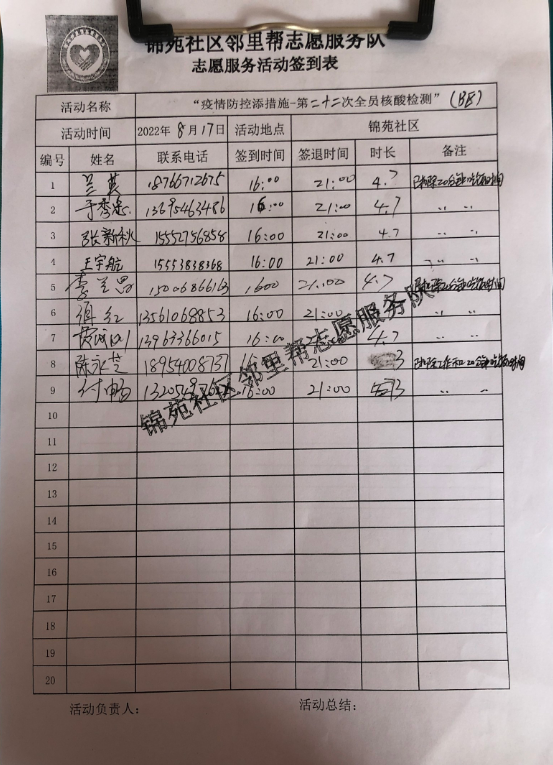 锦苑社区邻里帮志愿服务队
志愿服务活动签到表
活动名称 “疫情防控添措施-第二十二次全员核酸检测”
活动时间 2022年8月17日 活动地点 锦苑社区
编号 姓名 联系电话 签到时间 签退时间 时长 备注
1 18766712675 16:00 21:00 4.7
2 13695463486 16:00 21:00 4.7 〃 〃
3 张新秋 15552756858 16:00 21:00 4.7 〃 〃
4 王宇航 15553838368 16:00 21:00 4.7 〃 〃
5 15006866163 1600 21:00 4.7
6 13561068853 16:00 21:00
7 13963366015 16:00 4.7 〃 〃
8 陈永芝 18954008737 21:00
9 付畅 16:00 21:00 〃 〃
10
11
12
13
14
15
16
17
18
19
20
锦苑社区邻里帮志愿服务队
活动负责人: 活动总结: